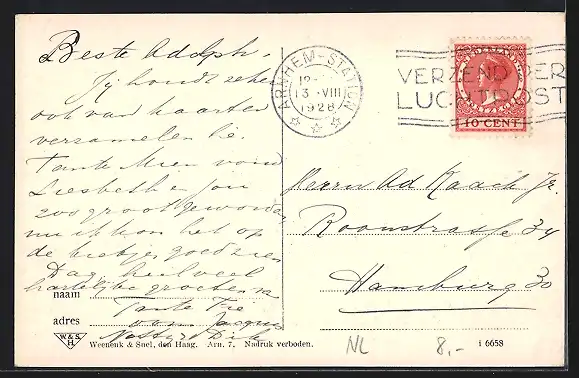 Beste Adolph,
Jij houdt zeker
ook van kaarten
verzamelen hè.
Tante Mien vond
Liesbeth en jou
zoo groot geworden
nu ik kon het op
de kiekjes goed zien
Dag, heel veel
hartelijke groeten van
naam Tante
adres oom Jacques
Dik
ARNHEM-STATION
13 VIII
1928
VERZEND PER
LUCHTPOST
NEDERLAND
10 CENT
Herrn Ad Kaack Jr.
Roonstrasse 34
Hamburg 30
W.& S.
H.
Weenenk & Snel, den Haag. Arn. 7. Nadruk verboden.
i 6658
NL
8,-